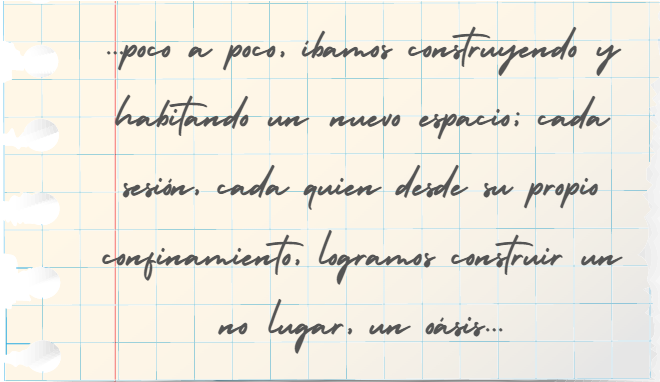 ...poco a poco, ibamos construyendo y
habitando un nuevo espacio; cada
sesión, cada quien desde su propio
confinamiento, logramos construir un
no lugar, un oásis...